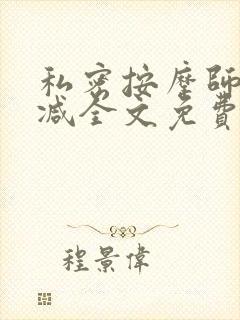 私密按摩師
减全文免費
程景偉